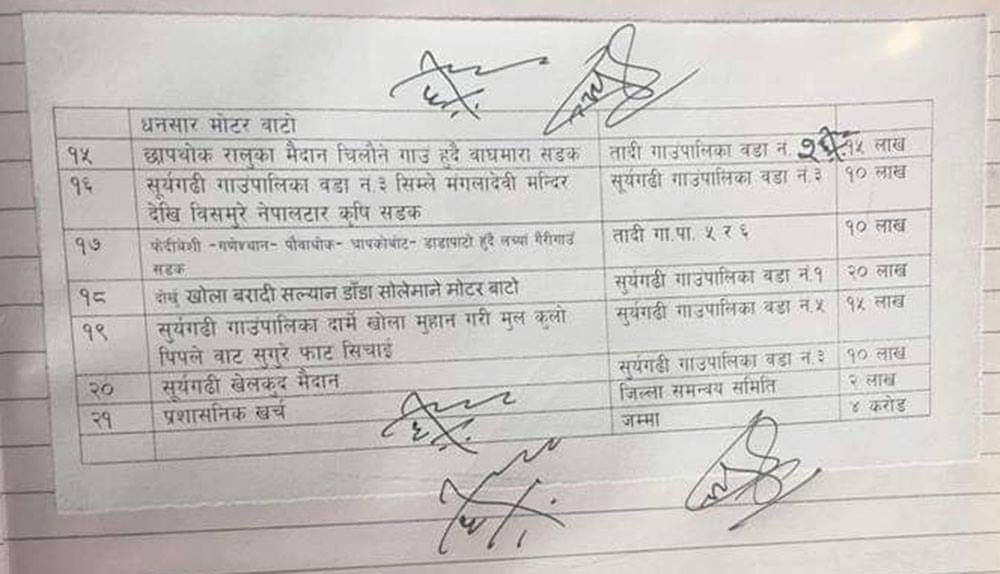 धनसार मोटर बाटो
१५ छापथोक रालुका मैदान चिलौने गाउं हुदै वाघमारा सडक तादी गाउंपालिका वडा नं. १५ लाख
१६ सूर्यगढी गाउंपालिका वडा नं.३ सिम्ले मंगलादेवी मन्दिर सूर्यगढी गाउंपालिका वडा नं.३ १० लाख
देखि विसमुरे नेपालटार कृषि सडक
१७ फेदीबेशी -गणेश्थान- पौवाथोक- चापकोबोट- डाडापाटो हुदै गैरीगाउं तादी गा.पा. ५ र ६ १० लाख
सडक
१८ खोला बरादी सल्यान डाँडा सोलेमाने मोटर बाटो सुर्यगढी गाउंपालिका वडा नं.१ २० लाख
१९ सुर्यगढी गाउंपालिका दार्मे खोला मुहान गरी मुल कुलो सुर्यगढी गाउंपालिका वडा नं.५ १५ लाख
पिपले वाट सुगुरे फाट सिचाई
२० सूर्यगढी खेलकुद मैदान सुर्यगढी गाउंपालिका वडा नं.३ १० लाख
२१ प्रशासनिक खर्च जिल्ला समन्वय समिति २ लाख
जम्मा ४ करोड